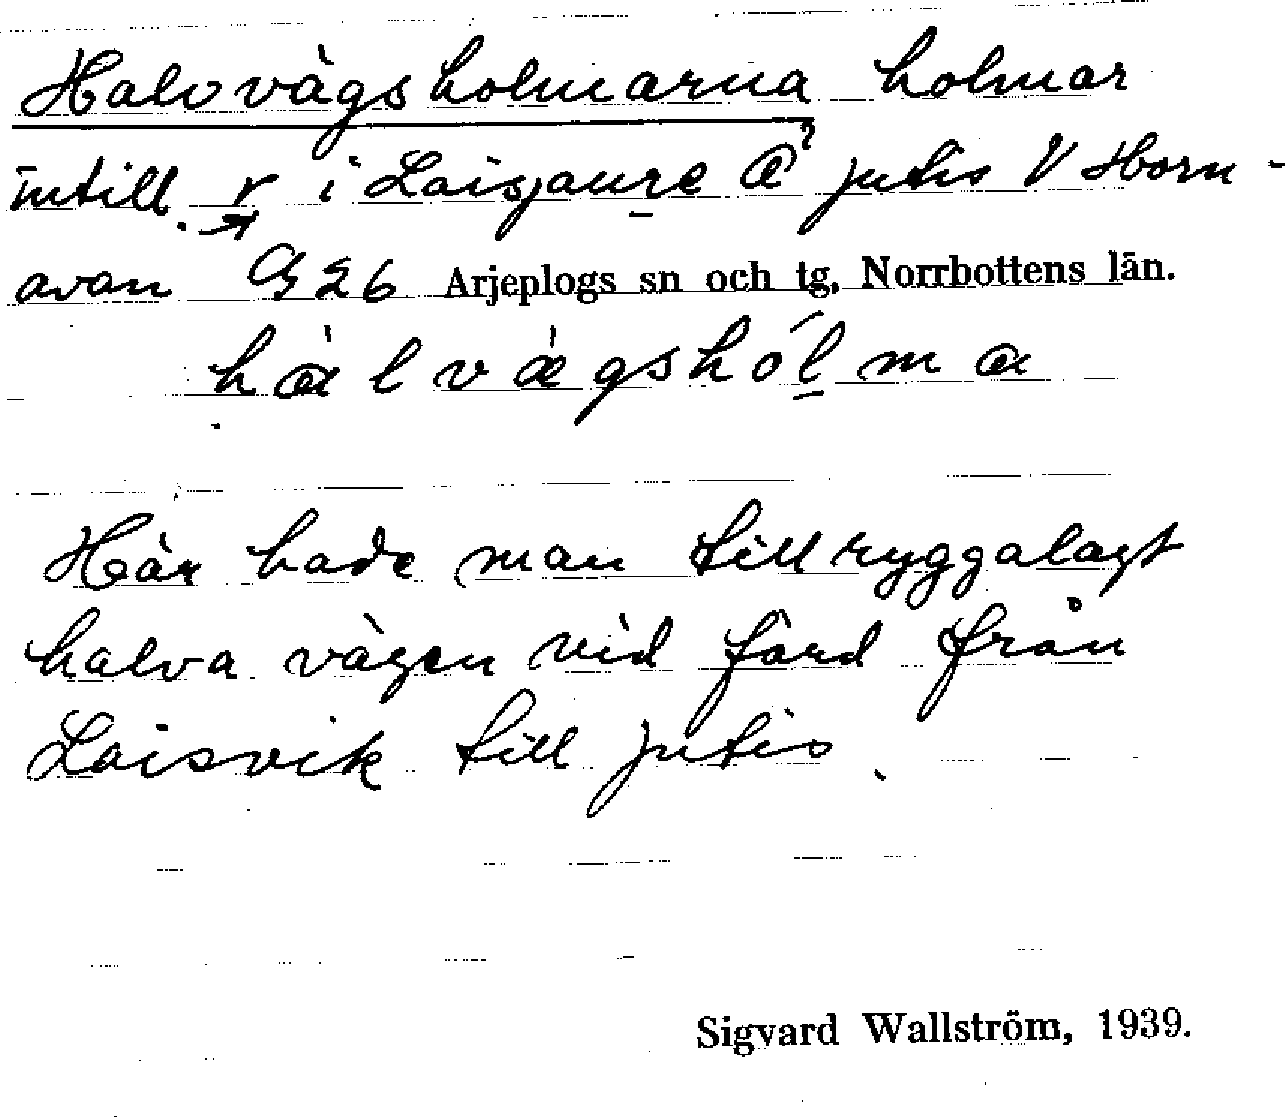 Halvvägsholmarna holmar
intill r i Laisjaure Ö jutis V Horn-
avan G 26 Arjeplogs sn och tg, Norrbottens län.
hàlvægshólma
Här hade man tillryggalagt
halva vägen vid färd från
Laisvik till jutis.
Sigvard Wallström, 1939.